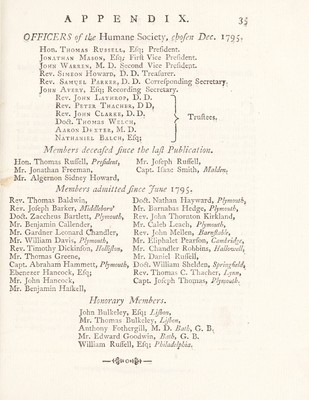 APPENDIX. 35
OFFICERS of the Humane Society, chosen Dec. 1795.
Hon. Thomas Russell, Esq; President.
Jonathan Mason, Esq; First Vice President.
John Warren, M. D. Second Vice President.
Rev. Simeon Howard, D. D. Treasurer.
Rev. Samuel Parker, D. D. Corresponding Secretary.
John Avery, Esq; Recording Secretary.
Rev. John Lathrop, D. D.
Rev. Peter Thacher, D D,
Rev. John Clarke, D. D.
Doct. Thomas Welch,
Aaron Dexter, M. D.
Nathaniel Balch, Esq;
Trustees.
Members deceased since the last Publication.
Hon. Thomas Russell, President,
Mr. Jonathan Freeman,
Mr. Algernon Sidney Howard,
Mr. Joseph Russell,
Capt. Isaac Smith, Malden;
Members admitted since June 1795.
Rev. Thomas Baldwin,
Rev. Joseph Barker, Middleboro'
Doct. Zaccheus Bartlett, Plymouth,
Mr. Benjamin Callender,
Mr. Gardner Leonard Chandler,
Mr. William Davis, Plymouth,
Rev. Timothy Dickinson, Holliston,
Mr. Thomas Greene,
Capt. Abraham Hammett, Plymouth,
Ebenezer Hancock, Esq;
Mr. John Hancock,
Mr. Benjamin Haskell,
Doct. Nathan Hayward, Plymouth,
Mr. Barnabas Hedge, Plymouth,
Rev. John Thornton Kirkland,
Mr. Caleb Leach, Plymouth,
Rev. John Mellen, Barnstable,
Mr. Eliphalet Pearson, Cambridge,
Mr. Chandler Robbins, Hallowell,
Mr. Daniel Russell,
Doct. William Shelden, Springfield,
Rev. Thomas C. Thacher, Lynn,
Capt. Joseph Thomas, Plymouth.
Honorary Members.
John Bulkeley, Esq; Lisbon,
Mr. Thomas Bulkeley, Lisbon,
Anthony Fothergill, M. D. Bath, G. B.
Mr. Edward Goodwin, Bath, G. B.
William Russell, Esq; Philadelphia.